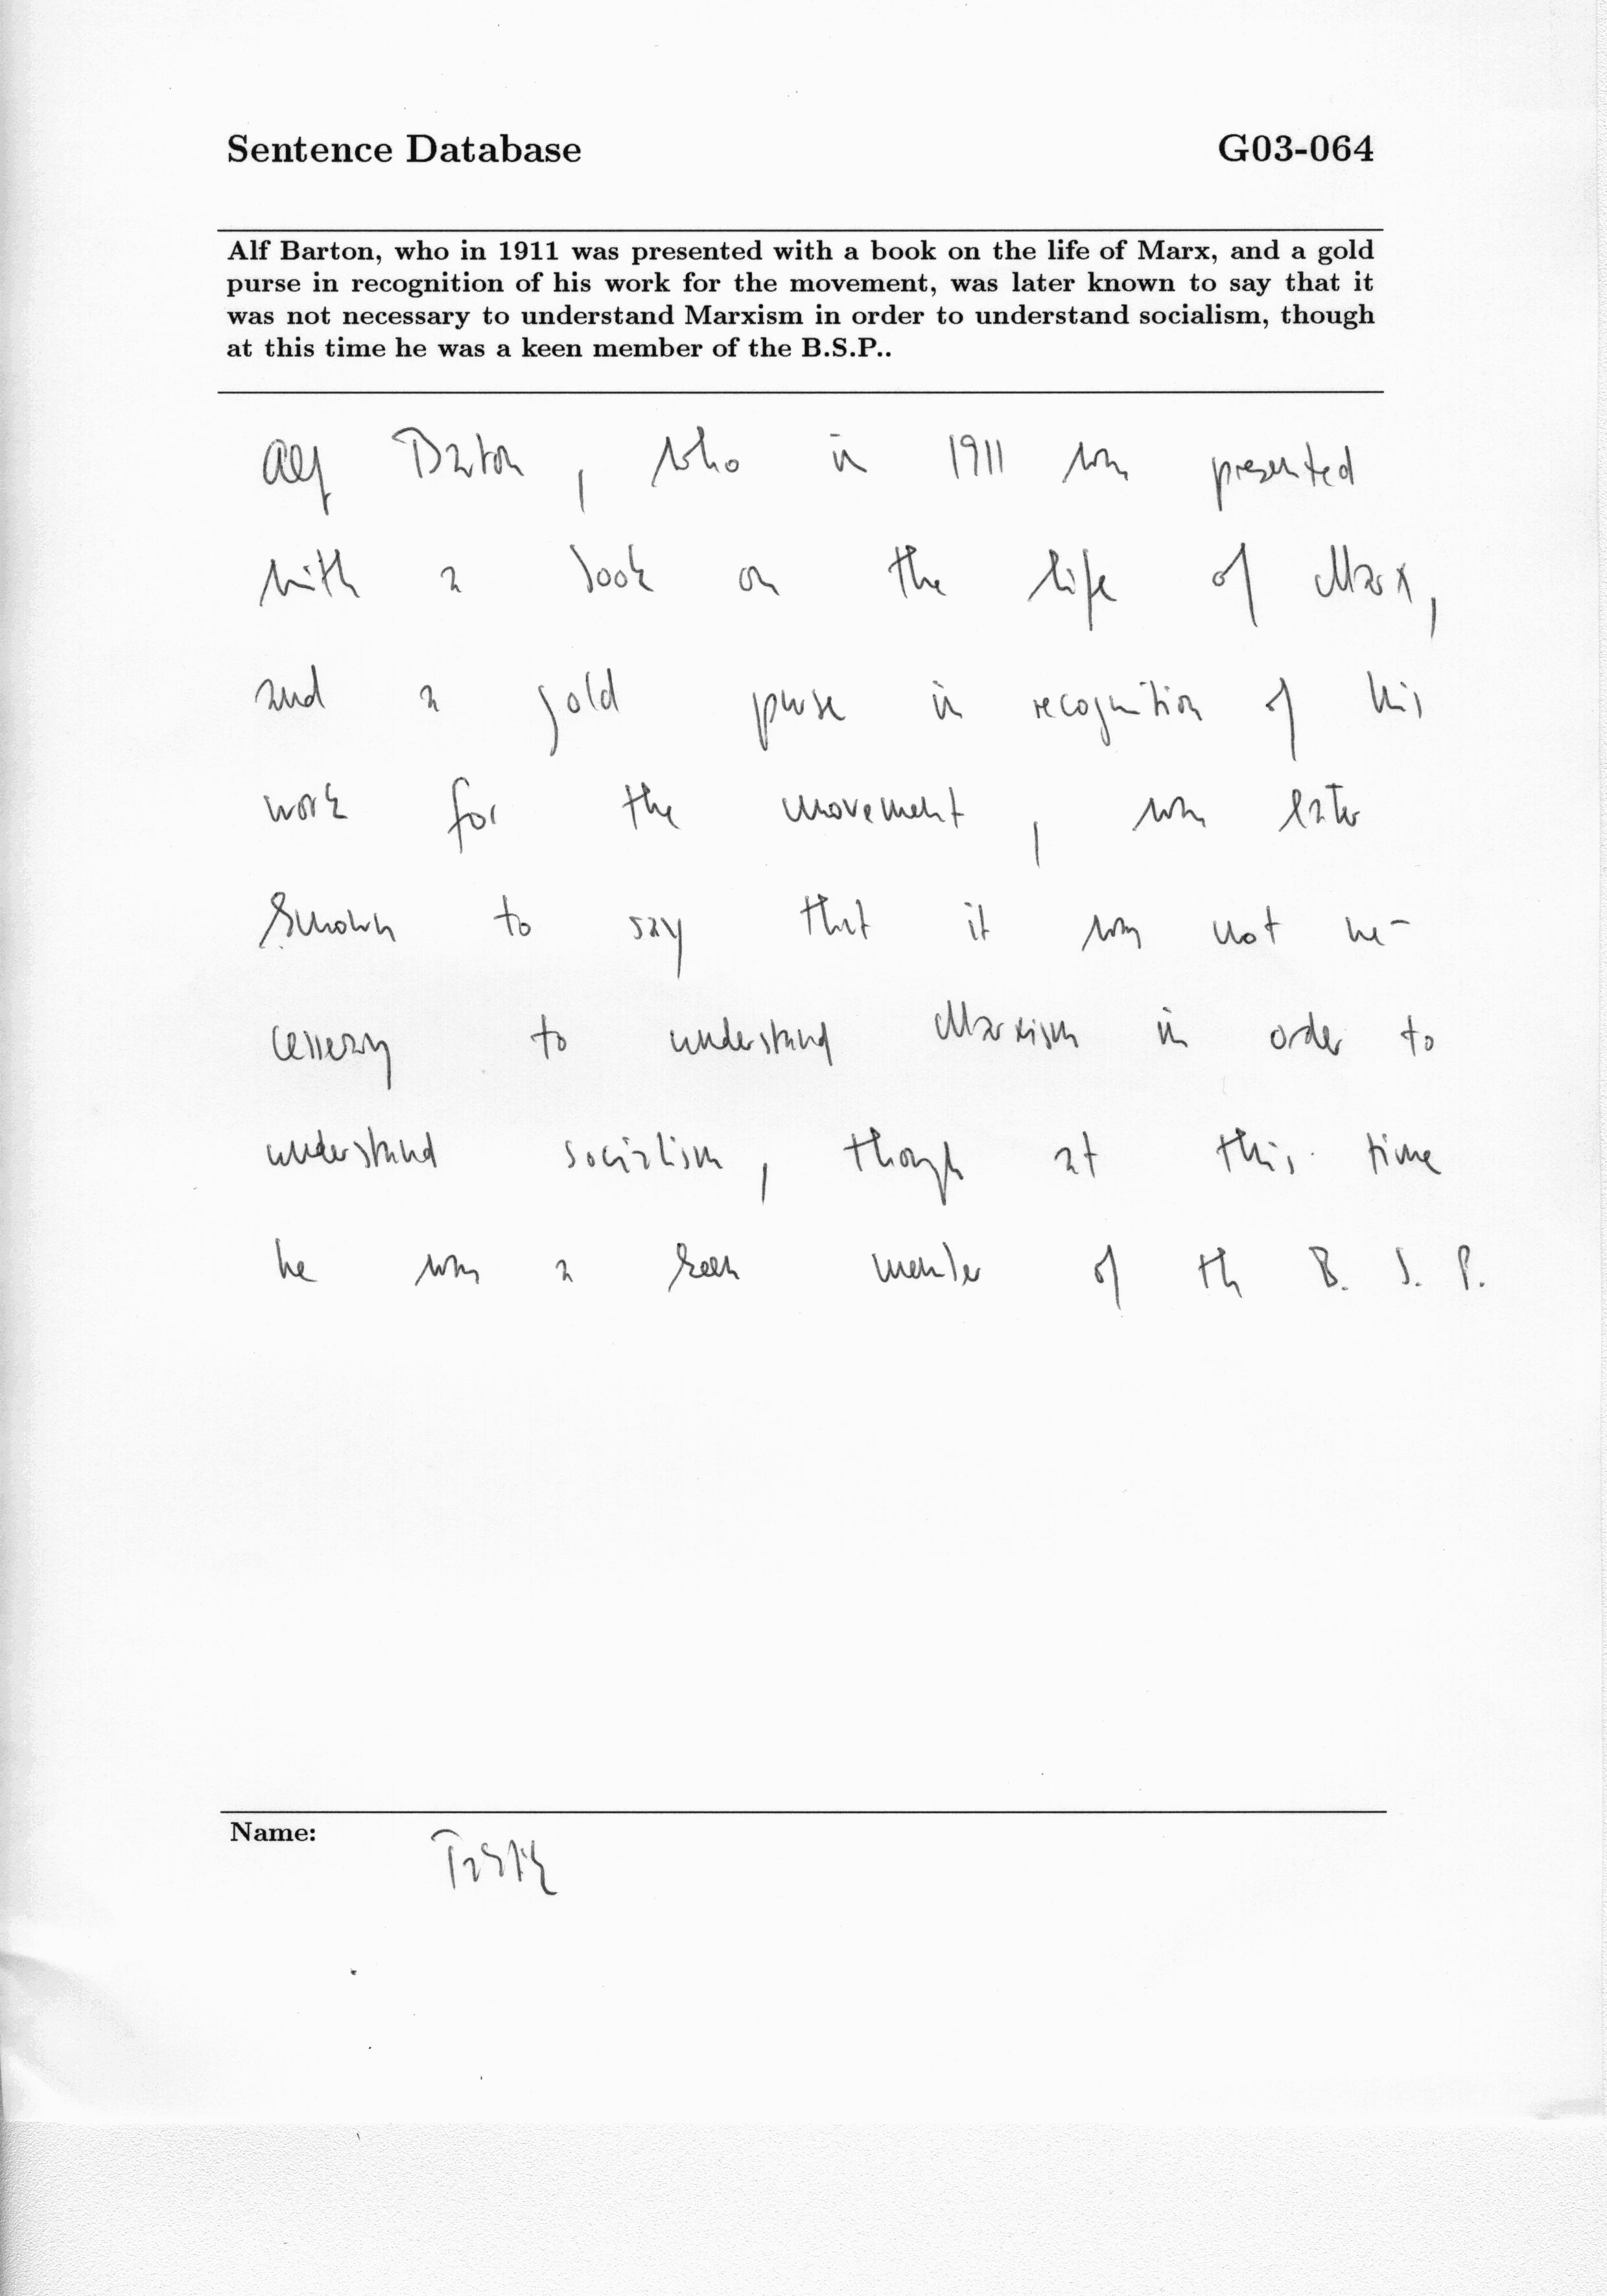 Sentence Database G03-064
Alf Barton, who in 1911 was presented with a book on the life of Marx, and a gold
purse in recognition of his work for the movement, was later known to say that it
was not necessary to understand Marxism in order to understand socialism, though
at this time he was a keen member of the B.S.P..
Alf Barton, who in 1911 was presented
with a book on the life of Marx,
and a gold purse in recognition of his
work for the movement, was later
known to say that it was not ne-
cessary to understand Marxism in order to
understand socialism, though at this time
he was a keen member of the B. S. P.
Name: